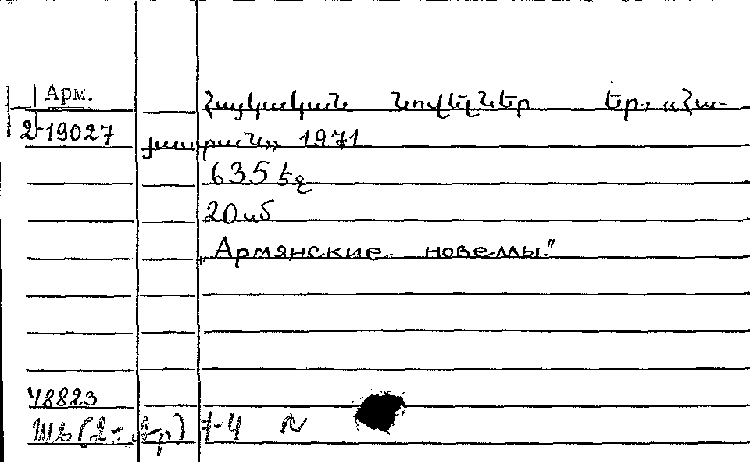 Арм.
2-19027
Հայկական նովելներ Եր. «Հա-
յաստան» 1971
635 էջ
20սմ
„Армянские новеллы"
48823
7-4